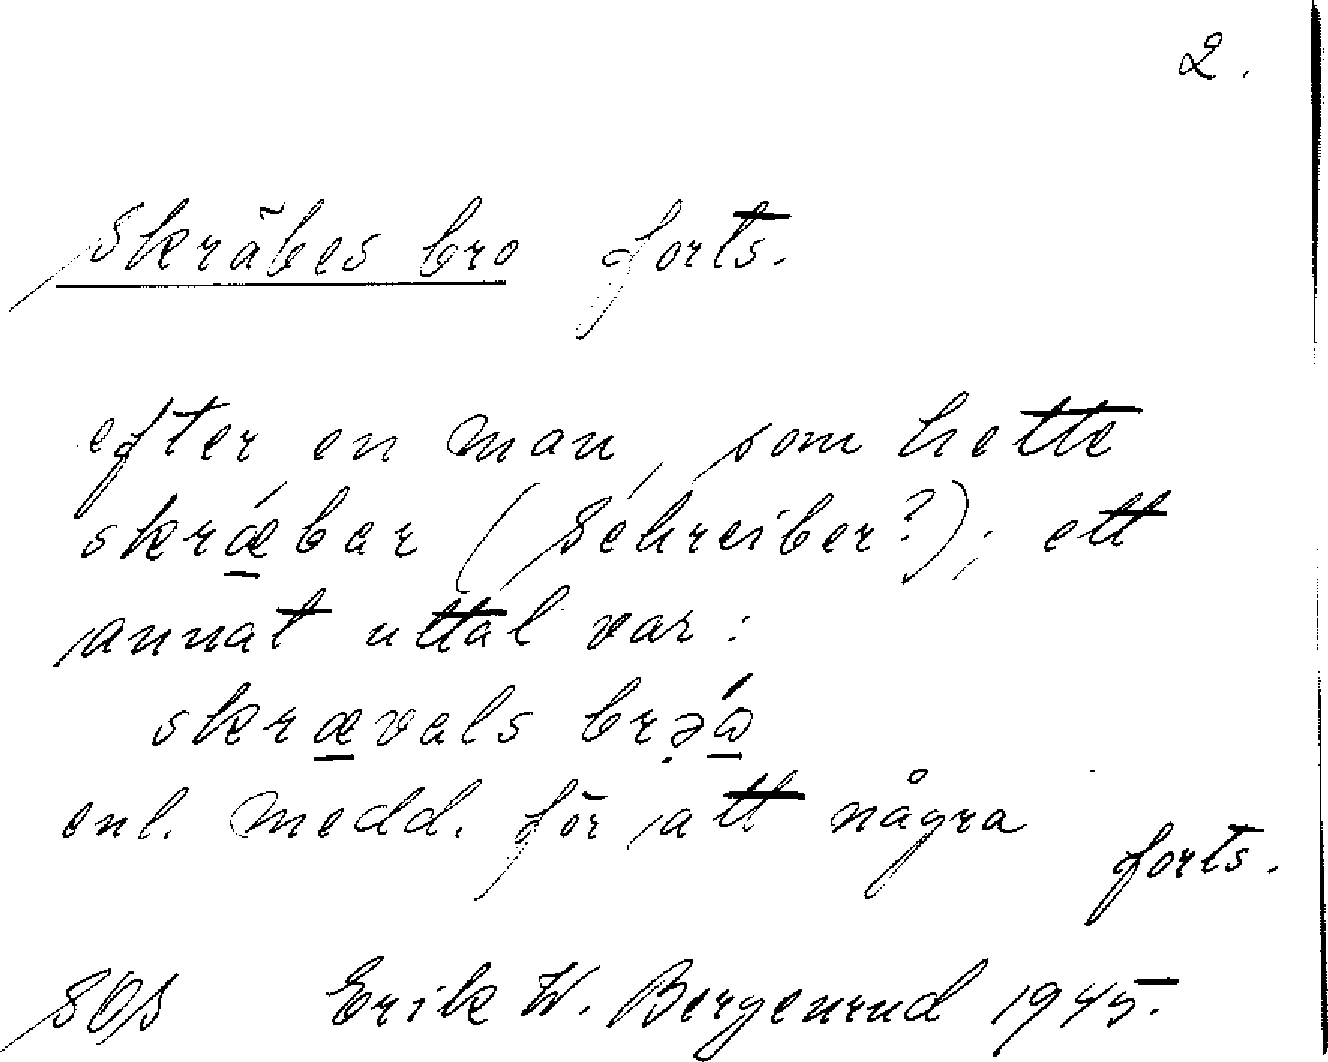 2.
Skräbes bro forts.
efter en man, som hette
skrǽbar (Schreiber?); ett
annat uttal var:
skrævals
enl. medd. för att några
forts.
Erik W. Bergenrud 1945.